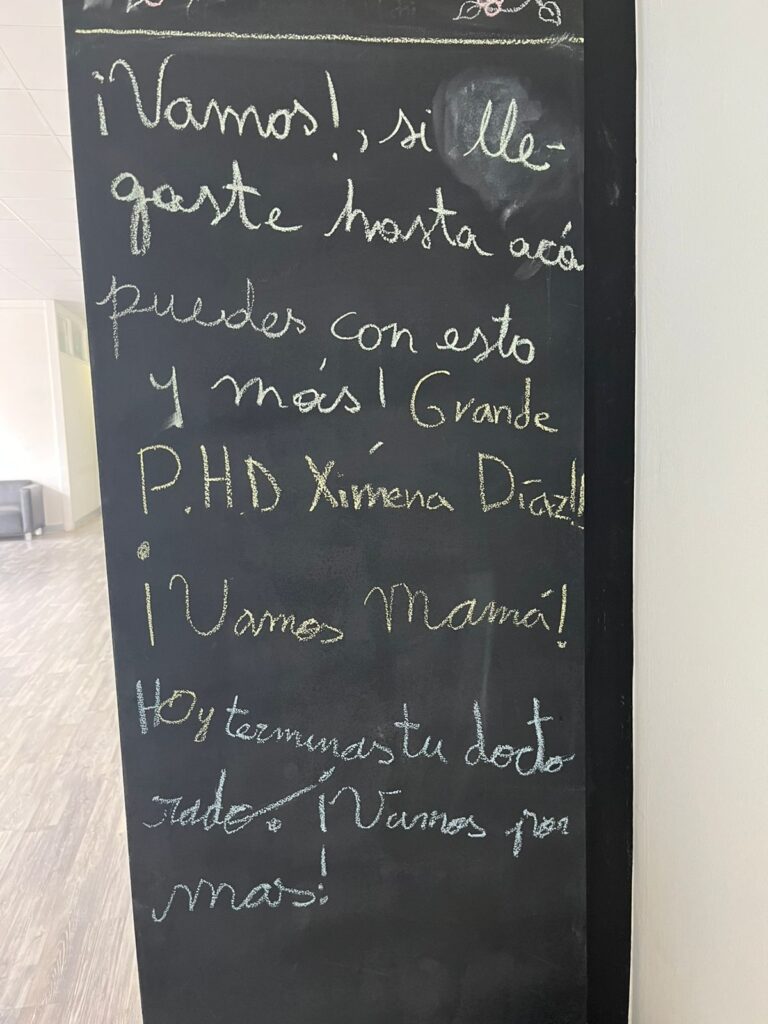 ¡Vamos!, si lle-
gaste hasta acá
puedes con esto
y más! Grande
P.H.D Ximena Díaz!!
¡Vamos Mamá!
HOy terminas tu docto
rado. ¡Vamos por
mas!